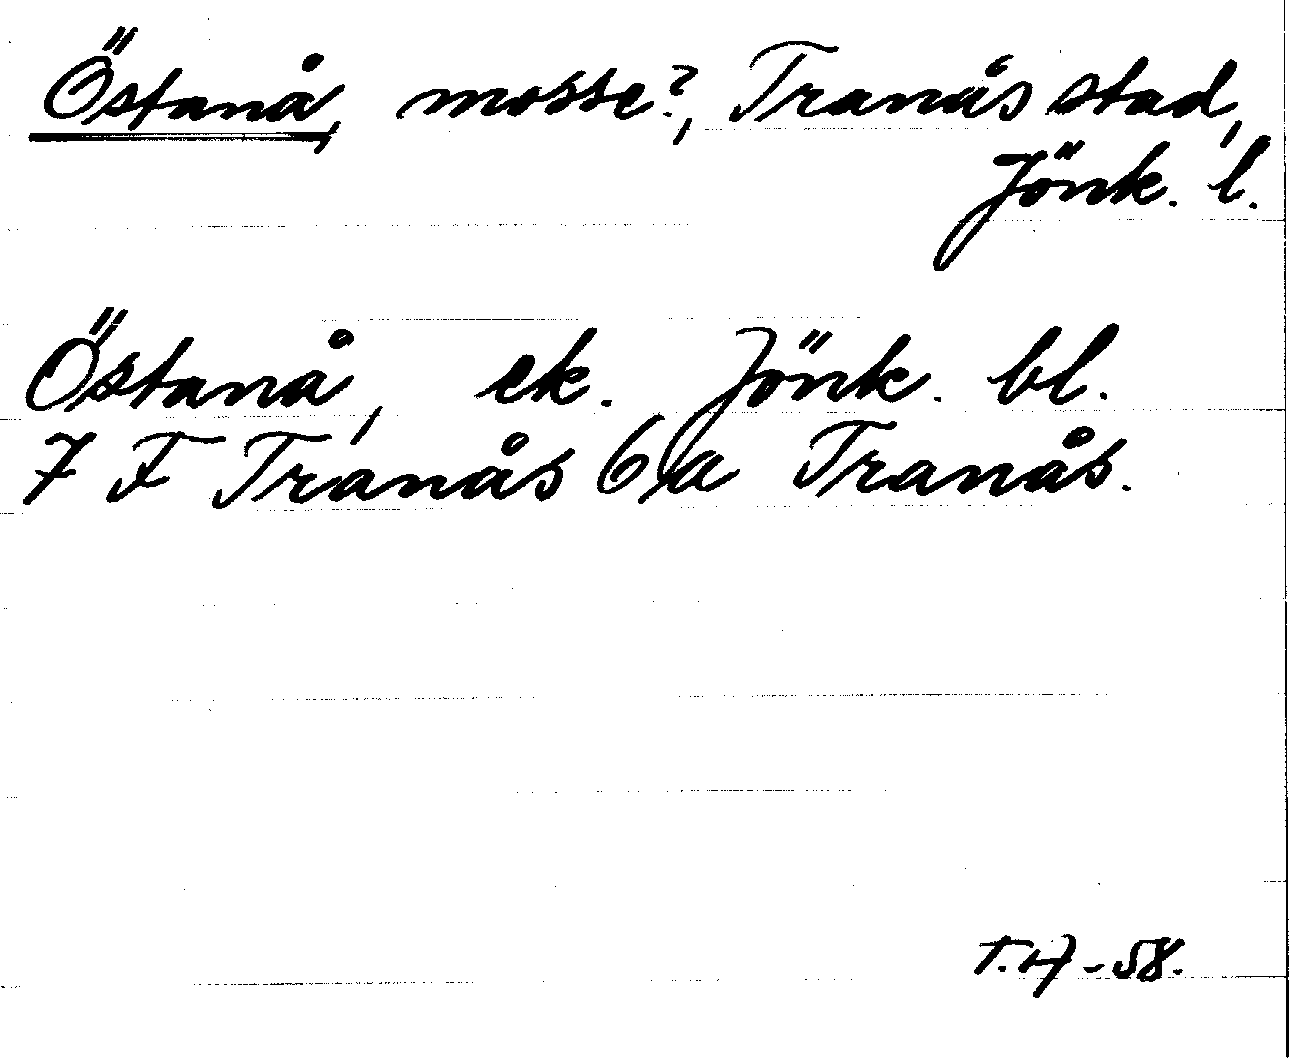 Östanå, mosse?, Tranås stad,
Jönk. l.
Östanå, ek. Jönk. bl.
7 F Tranås 6 a Tranås.
T.H-58.